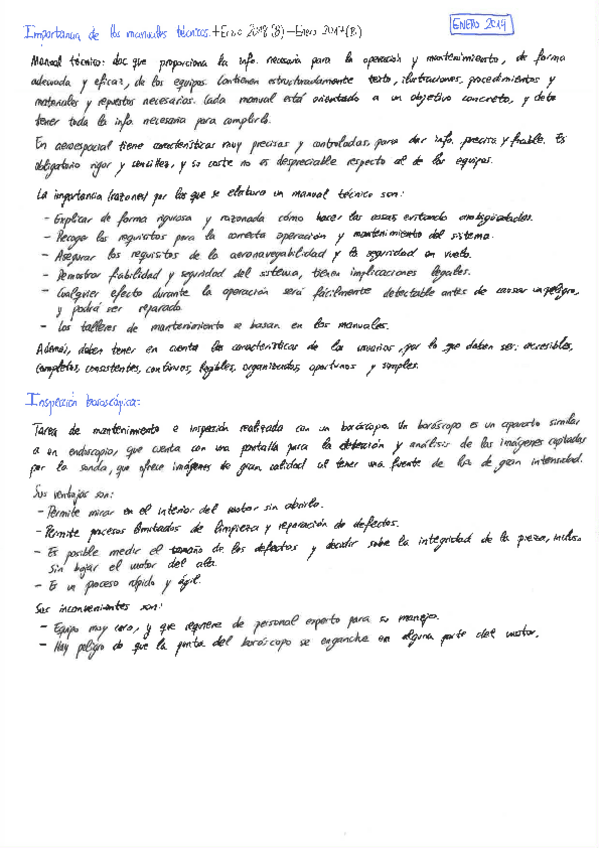 Importancia de los manuales técnicos. + Enero 2018 (B) - Enero 2017 (B)
ENERO 2019
Manual técnico: doc que proporciona la info. necesaria para la operación y mantenimiento, de forma
adecuada y eficaz, de los equipos. Contienen estructuradamente texto, ilustraciones, procedimientos y
materiales y repuestos necesarios. Cada manual está orientado a un objetivo concreto, y debe
tener toda la info. necesaria para cumplirlo.
En aeroespacial tiene características muy precisas y controladas, para dar info. precisa y fiable. Es
obligatorio rigor y sencillez, y su coste no es despreciable respecto al de los equipos.
La importancia (razones) por las que se elabora un manual técnico son:
- Explicar de forma rigurosa y razonada cómo hacer las cosas evitando ambigüedades.
- Recoger los requisitos para la correcta operación y mantenimiento del sistema.
- Asegurar los requisitos de la aeronavegabilidad y la seguridad en vuelo.
- Demostrar fiabilidad y seguridad del sistema, tienen implicaciones legales.
- Cualquier efecto durante la operación será fácilmente detectable antes de causar un peligro,
y podrá ser reparado.
- Los talleres de mantenimiento se basan en los manuales.
Además, deben tener en cuenta las características de los usuarios, por lo que deben ser: accesibles,
completos, consistentes, continuos, legibles, organizados, oportunos y simples.
Inspección boroscópica:
Tarea de mantenimiento e inspección realizada con un boróscopo. Un boróscopo es un aparato similar
a un endoscopio, que cuenta con una pantalla para la detección y análisis de las imágenes captadas
por la sonda, que ofrece imágenes de gran calidad al tener una fuente de luz de gran intensidad.
Sus ventajas son:
- Permite mirar en el interior del motor sin abrirlo.
- Permite procesos limitados de limpieza y reparación de defectos.
- Es posible medir el tamaño de los defectos y decidir sobre la integridad de la pieza, incluso
sin bajar el motor del ala.
- Es un proceso rápido y ágil.
Sus inconvenientes son:
- Equipo muy caro, y que requiere de personal experto para su manejo.
- Hay peligro de que la punta del boróscopo se enganche en alguna parte del motor.